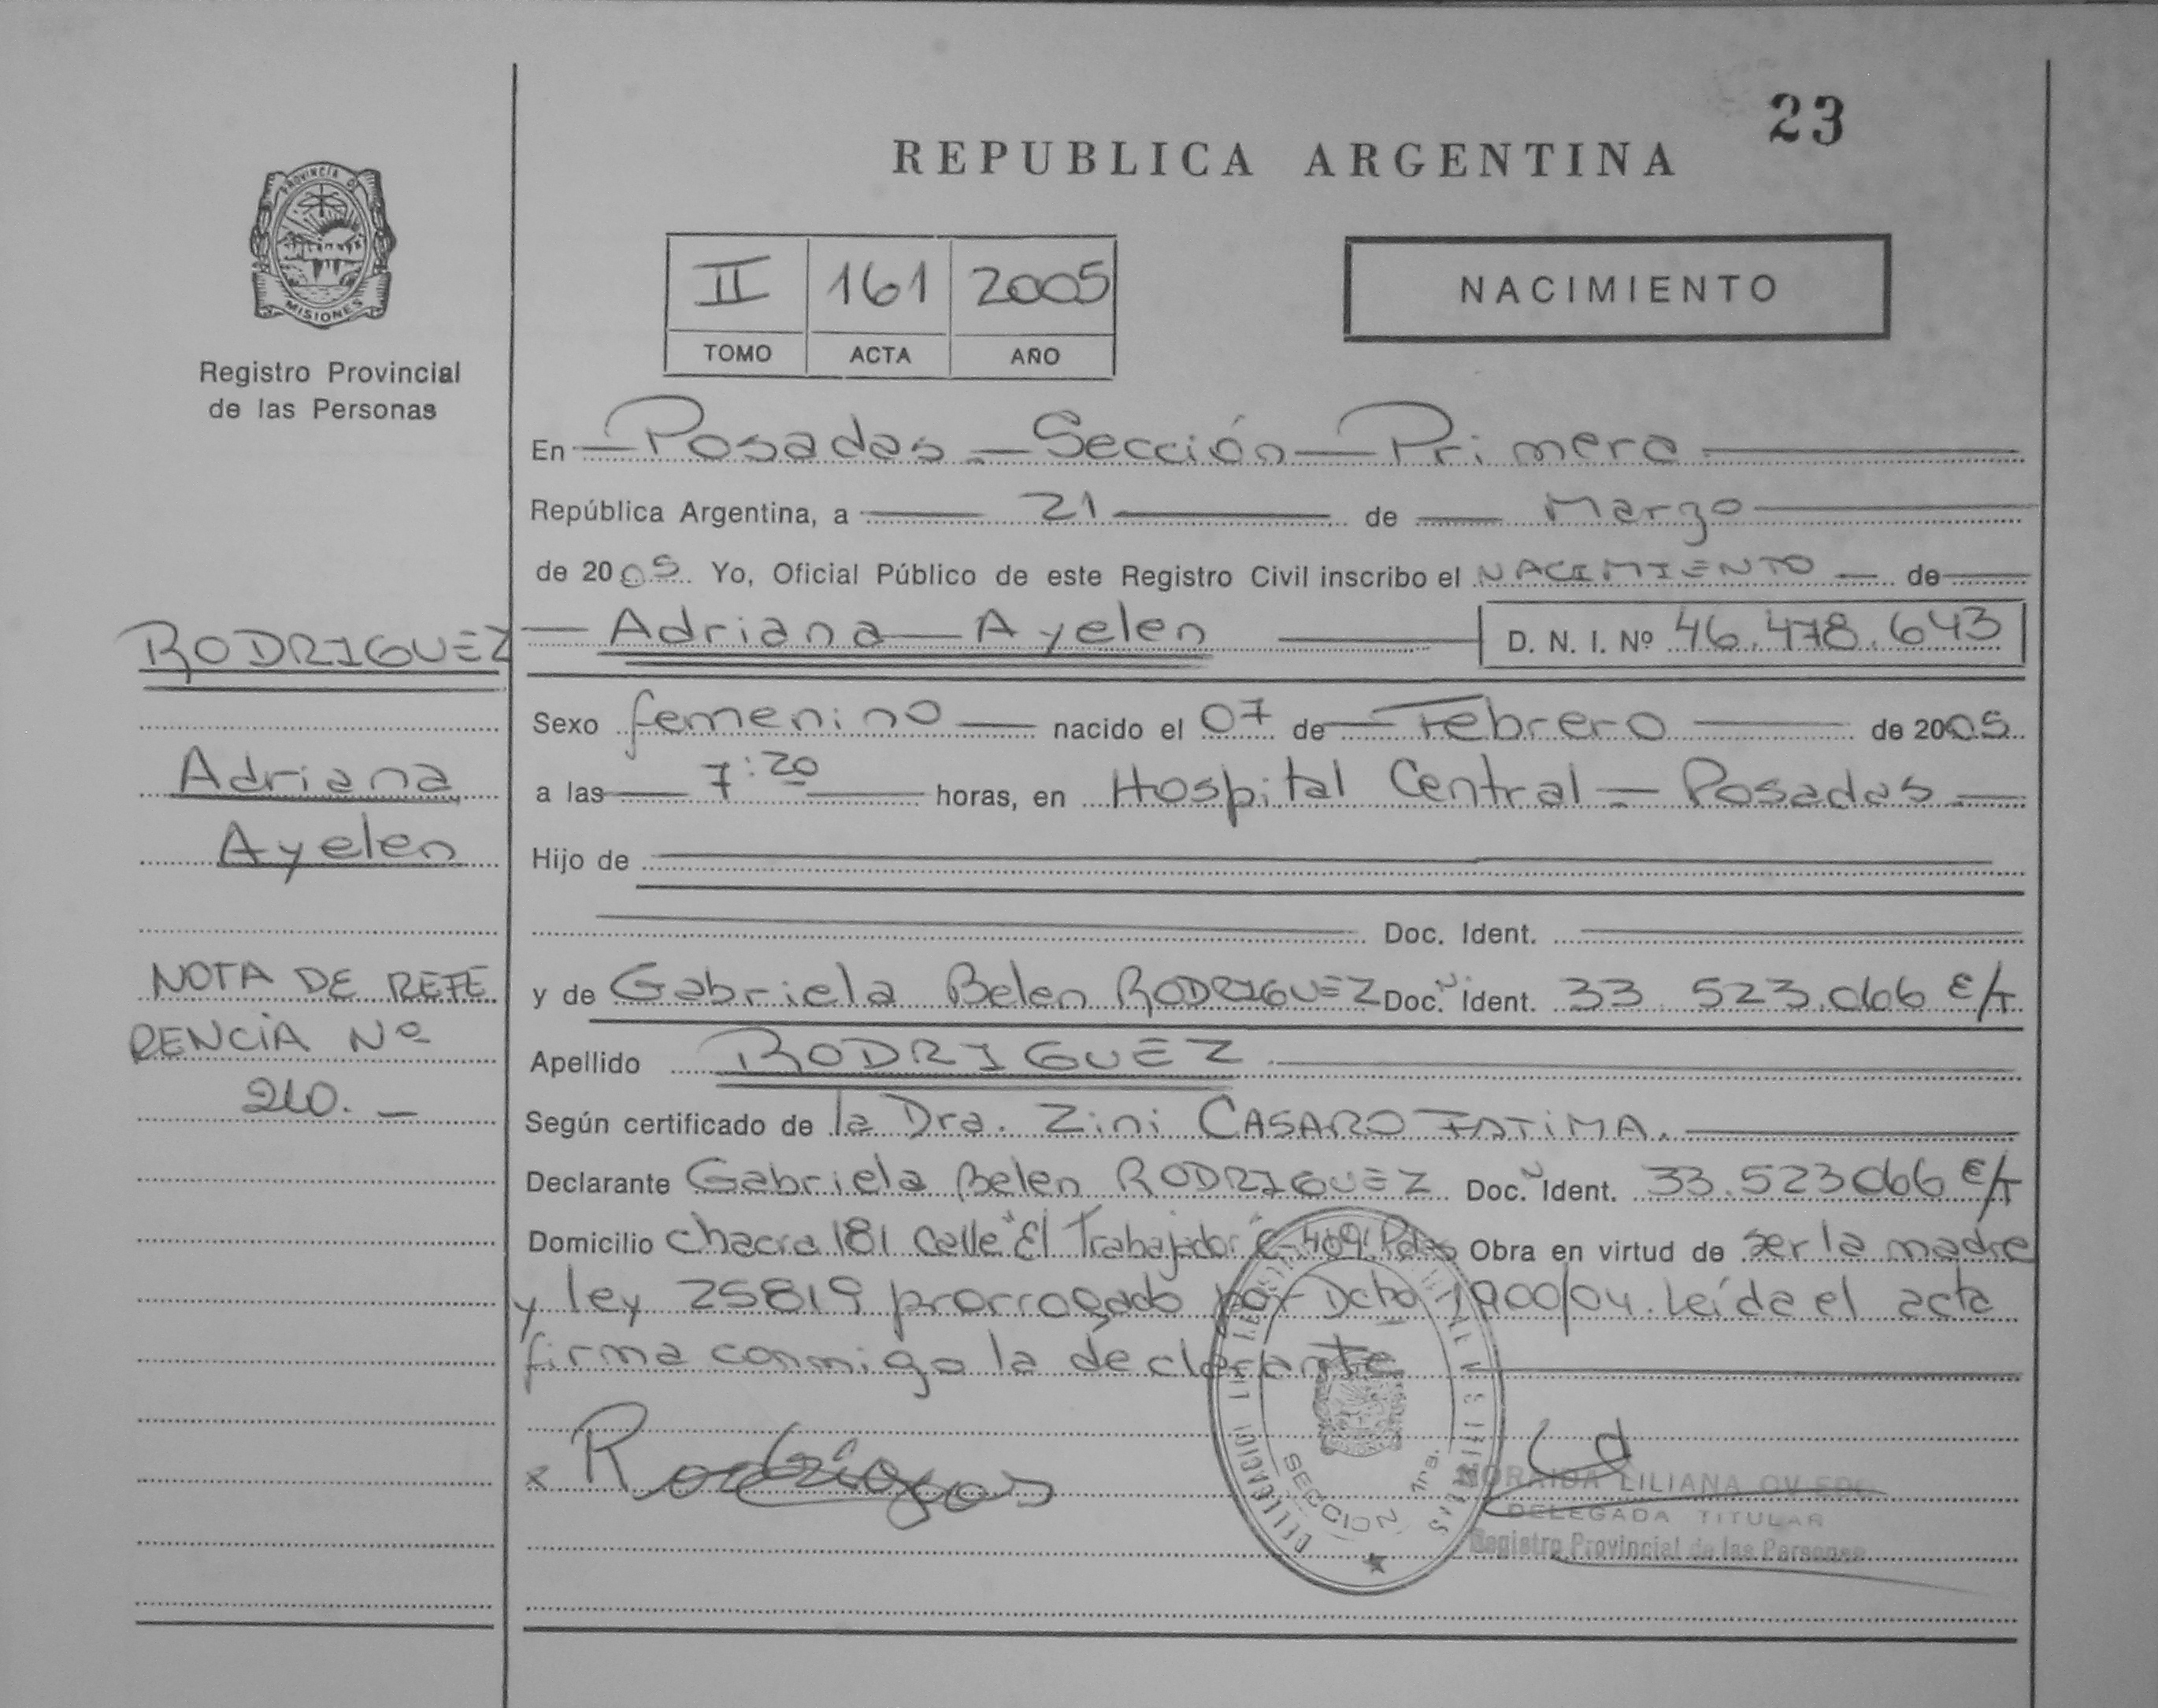 23
REPUBLICA ARGENTINA
PROVINCIA DE
MISIONES
Registro Provincial
de las Personas
II 161 2005
TOMO ACTA AÑO
NACIMIENTO
En Posadas - Sección Primera
República Argentina, a 21 de Marzo
de 2005 Yo, Oficial Público de este Registro Civil inscribo el NACIMIENTO de
RODRIGUEZ
Adriana
Ayelen
NOTA DE REFE
RENCIA Nº
210.-
Adriana Ayelen D. N. I. Nº 46.478.643
Sexo femenino nacido el 07 de Febrero de 2005
a las 7:20 horas, en Hospital Central - Posadas
Hijo de
Doc. Ident.
y de Gabriela Belen RODRIGUEZ Doc. Ident. 33.523.066 E/T
Apellido RODRIGUEZ
Según certificado de la Dra. Zini CASARO FATIMA.
Declarante Gabriela Belen RODRIGUEZ Doc. Ident. 33.523066 E/T
Domicilio chacra 181 calle "El Trabajador" C-409 Pdas Obra en virtud de ser la madre
y ley 25819 prorrogado por Dcto 1900/04. Leída el acta
firma conmigo la declarante
x
SECCION 1ra.
LILIANA
DELEGADA TITULAR
Registro Provincial de las Personas